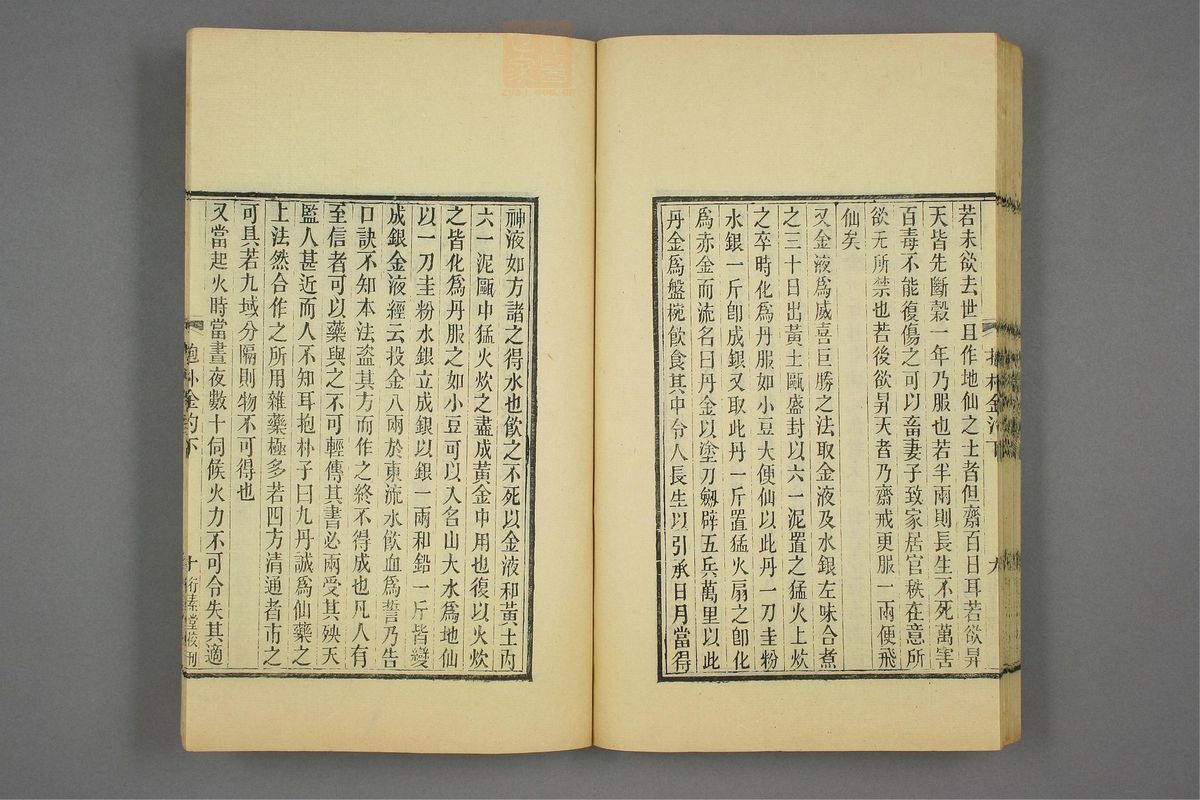 若未欲去世且作地仙之士者但齋百日耳若欲昇
天皆先斷穀一年乃服也若半兩則長生不死萬害
百毒不能復傷之可以畜妻子致家居官秩在意所
欲无所禁也若後欲昇天者乃齋戒更服一兩便飛
仙矣
又金液爲威喜巨勝之法取金液及水銀左味合煮
之三十日出黃土甌盛封以六一泥置之猛火上炊
之卒時化爲丹服如小豆大便仙以此丹一刀圭粉
水銀一斤卽成銀又取此丹一斤置猛火扇之卽化
爲赤金而流名曰丹金以塗刀劔辟五兵萬里以此
丹金爲盤椀飲食其中令人長生以引承日月當得
神液如方諸之得水也飲之不死以金液和黃土內
六一泥甌中猛火炊之盡成黃金中用也復以火炊
之皆化爲丹服之如小豆可以入名山大水爲地仙
以一刀圭粉水銀立成銀以銀一兩和鉛一斤皆變
成銀金液經云投金八兩於東流水飲血爲誓乃告
口訣不知本法盜其方而作之終不得成也凡人有
至信者可以藥與之不可輕傳其書必兩受其殃天
監人甚近而人不知耳抱朴子曰九丹誠爲仙藥之
上法然合作之所用雜藥極多若四方清通者市之
可具若九域分隔則物不可得也
又當起火時當晝夜數十伺候火力不可令失其適
抱朴金汋下
十
衎蓁堂校刊